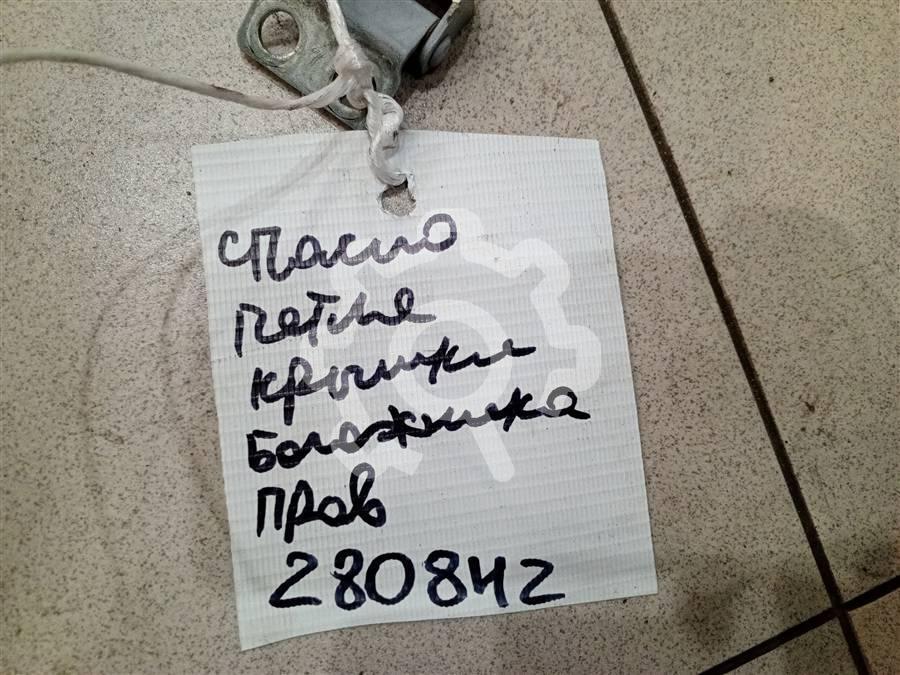 спасио
петля
крышки
Богажника
прав
280842